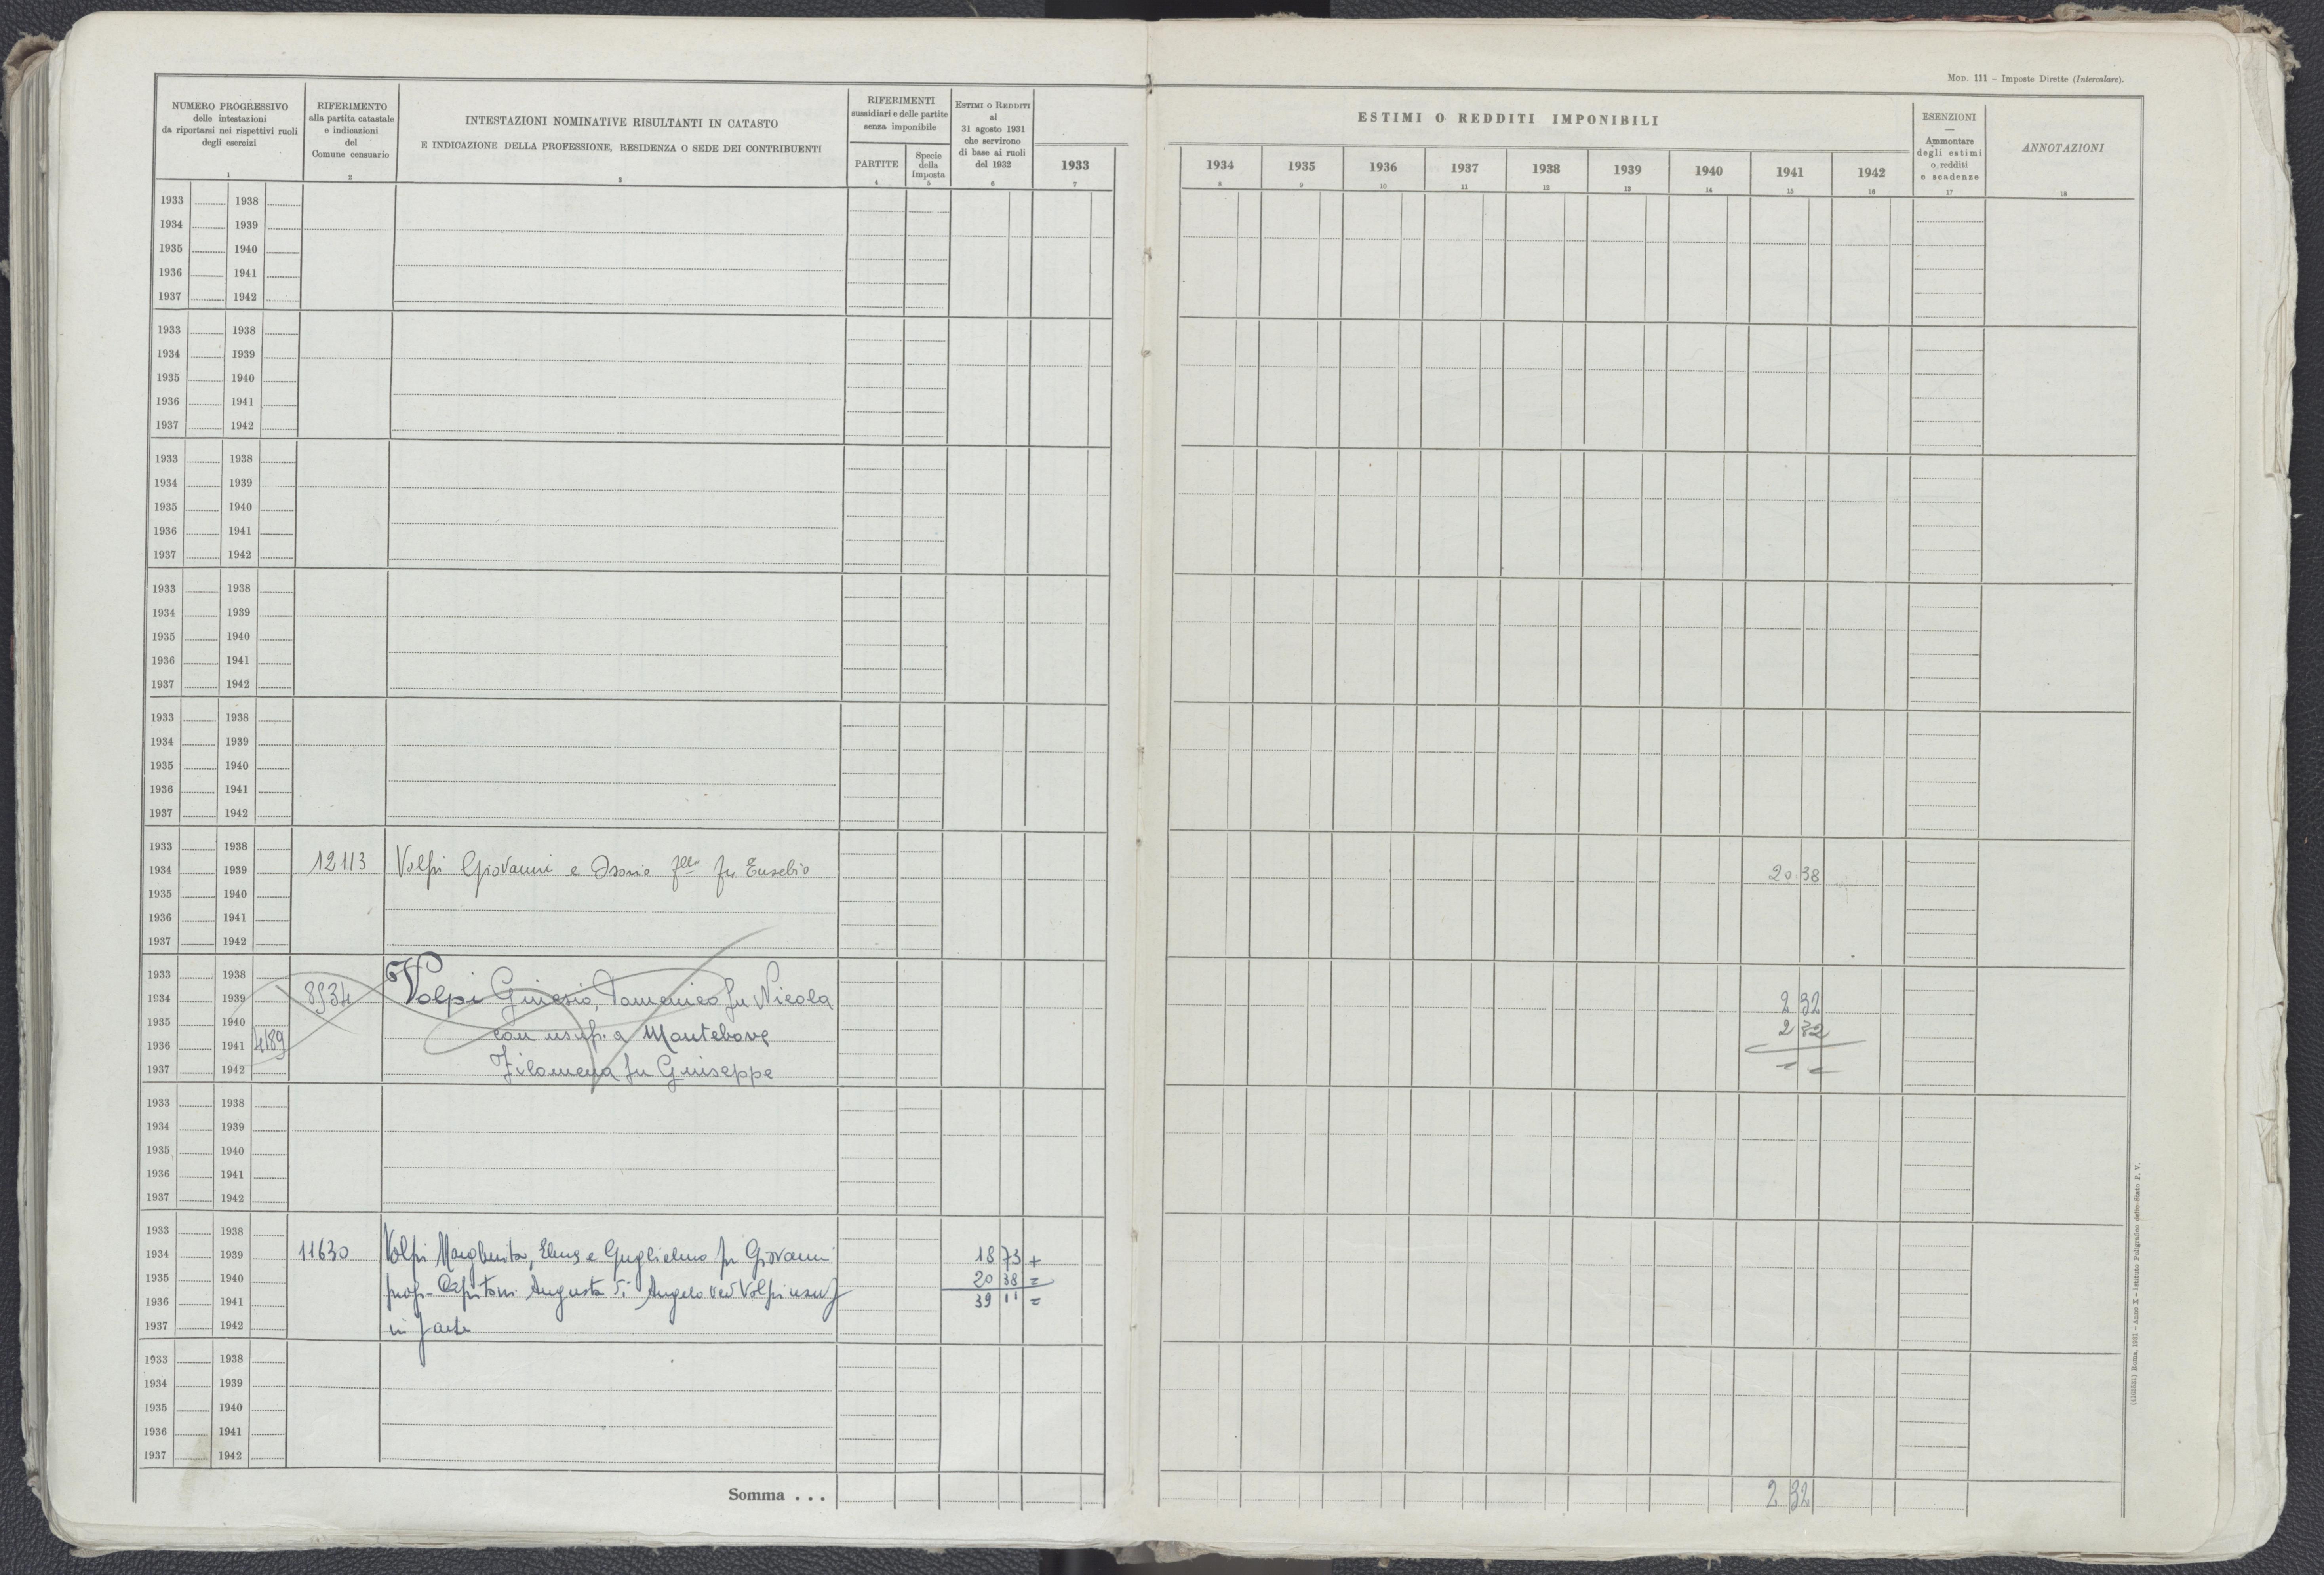 Mod. 111 – Imposte Dirette (Intercalare).
NUMERO PROGRESSIVO
delle intestazioni
da riportarsi nei rispettivi ruoli
degli esercizi
1
RIFERIMENTO
alla partita catastale
e indicazioni
del
Comune censuario
2
INTESTAZIONI NOMINATIVE RISULTANTI IN CATASTO
E INDICAZIONE DELLA PROFESSIONE, RESIDENZA O SEDE DEI CONTRIBUENTI
3
RIFERIMENTI
sussidiari e delle partite
senza imponibile
PARTITE
4
Specie
della
Imposta
5
Estimi o Redditi
al
31 agosto 1931
che servirono
di base ai ruoli
del 1932
6
1933
7
ESTIMI O REDDITI IMPONIBILI
1934 1935 1936 1937 1938 1939 1940 1941 1942
8 9 10 11 12 13 14 15 16
ESENZIONI
—
Ammontare
degli estimi
o redditi
e scadenze
17
ANNOTAZIONI
18
1933 1938
1934 1939
1935 1940
1936 1941
1937 1942
1933 1938
1934 1939
1935 1940
1936 1941
1937 1942
1933 1938
1934 1939
1935 1940
1936 1941
1937 1942
1933 1938
1934 1939
1935 1940
1936 1941
1937 1942
1933 1938
1934 1939
1935 1940
1936 1941
1937 1942
1933 1938
1934 1939 12113 Volpi Giovanni e f.lli fu Eusebio 20 38
1935 1940
1936 1941
1937 1942
1933 1938
1934 1939 8934 Volpi Ginesio, Domenico fu Nicola 2 32
1935 1940 con usuf. a Montebove 2 32
1936 1941 4189
1937 1942 Filomena fu Giuseppe
1933 1938
1934 1939
1935 1940
1936 1941
1937 1942
1933 1938
1934 1939 11630 Volpi Margherita, e Guglielmo fu Giovanni 18 73 +
1935 1940 prop- Capitani Augusta di Angelo ved Volpi usuf 20 38 =
1936 1941 39 11 =
1937 1942 in parte
1933 1938
1934 1939
1935 1940
1936 1941
1937 1942
Somma . . . 2 32
(4103531) Roma, 1931 – Anno X – Istituto Poligrafico dello Stato P. V.